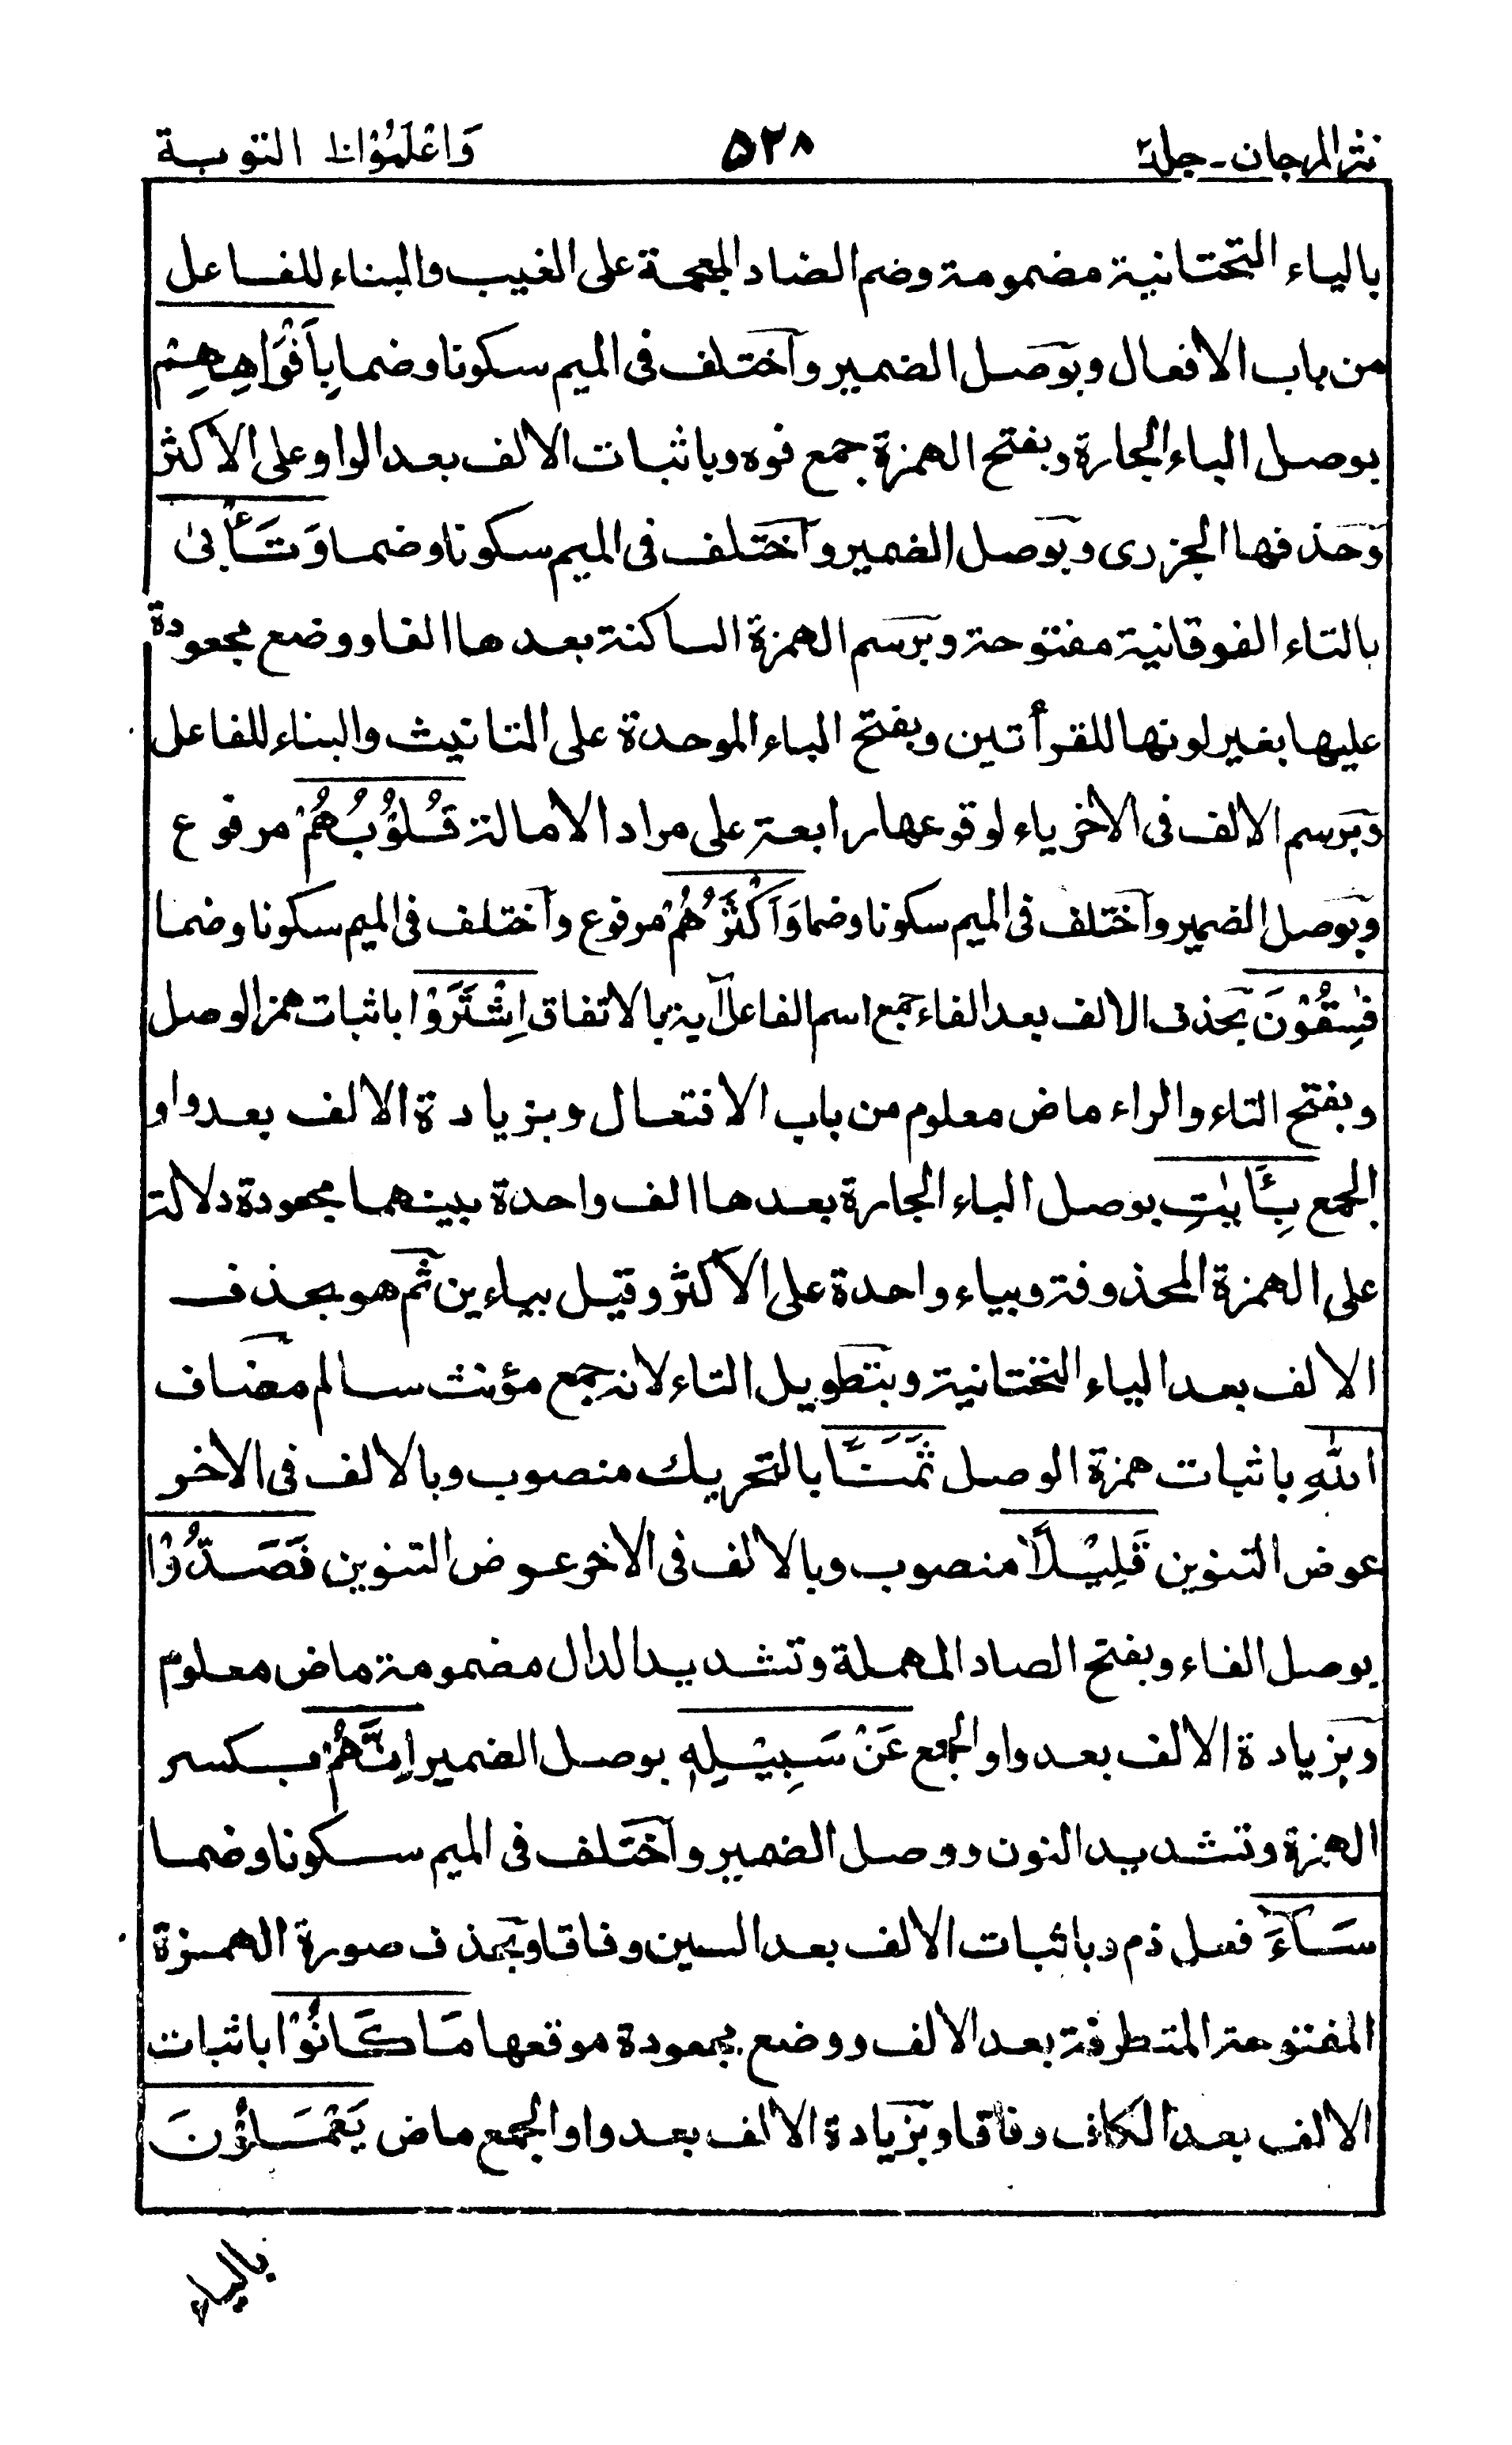 نثر المرجان - جلد ٢
٥٢٨
وَاعْلَمُوْا ١٠ التوبة
بالياء التحتانية مضمومة وضم الضاد المعجمة على الغيب والبناء للفاعل
من باب الافعال وبوصل الضمير وآختلف فى الميم سكونا وضما بِاَفْوَاهِهِمْ
بوصل الباء الجارة وبفتح الهمزة جمع فوه وباثبات الالف بعد الواو على الاكثر
وحذفها الجزرى وبوصل الضمير وآختلف فى الميم سكونا وضما وَتَأْبىٰ
بالتاء الفوقانية مفتوحة وبرسم الهمزة الساكنة بعدها الفا ووضع مجعودة
عليها بغير لونها للقرأتين وبفتح الباء الموحدة على التانيث والبناء للفاعل
وبرسم الالف فى الاخر ياء لوقوعها رابعة على مراد الامالة قُلُوْبُهُمْ مرفوع
وبوصل الضمير وآختلف فى الميم سكونا وضما وَاَكْثَرُهُمْ مرفوع وآختلف فى الميم سكونا وضما
فٰسِقُوْنَ بحذف الالف بعد الفاء جمع اسم الفاعل آية بالاتفاق اِشْتَرَوْا باثبات همز الوصل
وبفتح التاء والراء ماض معلوم من باب الافتعال وبزيادة الالف بعد واو
الجمع بِـَٔايٰتِ بوصل الباء الجارة بعدها الف واحدة بينهما مجعودة دلالة
على الهمزة المحذوفة وبياء واحدة على الاكثر وقيل بياءين ثم هو بحذف
الالف بعد الياء التحتانية وبتطويل التاء لانه جمع مؤنث سالم مضاف
اللّٰهِ باثبات همزة الوصل ثَمَنًا بالتحريك منصوب وبالالف فى الاخر
عوض التنوين قَلِيْلًا منصوب وبالالف فى الاخر عوض التنوين فَصَدُّوْا
بوصل الفاء وبفتح الصاد المهملة وتشديد الدال مضمومة ماض معلوم
وبزيادة الالف بعد واو الجمع عَنْ سَبِيْلِهٖ بوصل الضمير اِنَّهُمْ بكسر
الهمزة وتشديد النون ووصل الضمير وآختلف فى الميم سكونا وضما
سَآءَ فعل ذم وباثبات الالف بعد السين وفاقا وبحذف صورة الهمزة
المفتوحة المتطرفة بعد الالف ووضع مجعودة موقعها مَا كَانُوْا باثبات
الالف بعد الكاف وفاقا وبزيادة الالف بعد واو الجمع ماض يَعْمَلُوْنَ
بالياء